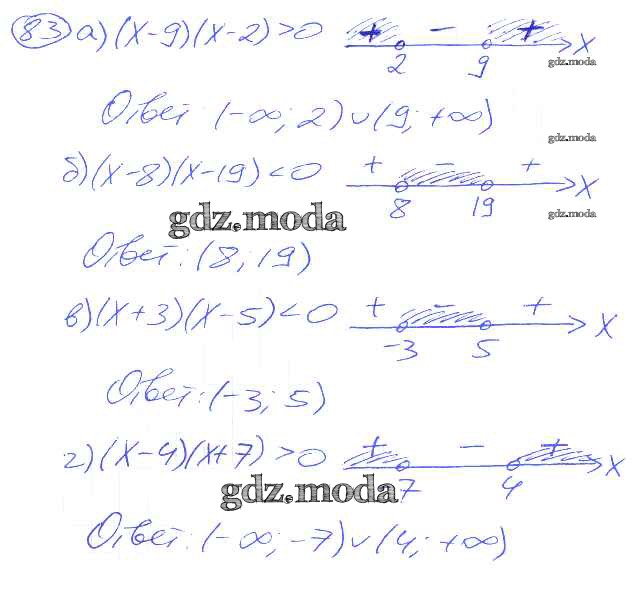 83 а) (x-9)(x-2)>0 + - + x
2 9 gdz.moda
Ответ: (-∞; 2)∪(9; +∞)
gdz.moda
б) (x-8)(x-19)<0 + - + x
8 19 gdz.moda
gdz.moda
Ответ: (8; 19)
в) (x+3)(x-5)<0 + - + x
-3 5
Ответ: (-3; 5)
г) (x-4)(x+7)>0 + - + x
gdz.moda 7 4
Ответ: (-∞; -7)∪(4; +∞)